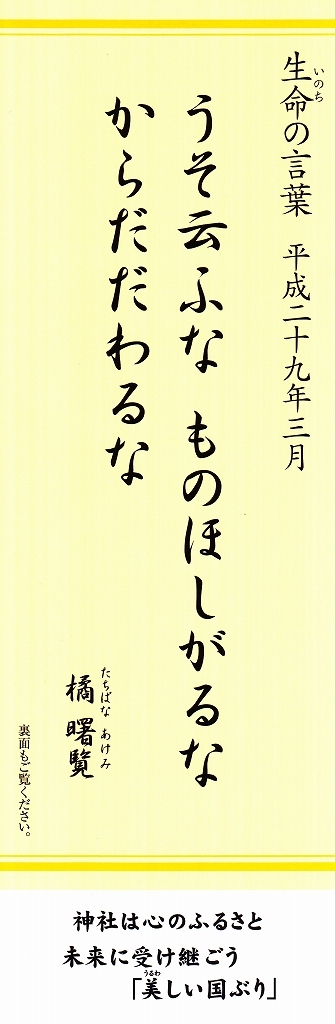 生命の言葉　平成二十九年三月
いのち
うそ云ふな ものほしがるな
からだだわるな
たちばな あけみ
橘 曙覧
裏面もご覧ください。
神社は心のふるさと
未来に受け継ごう
うるわ
「美しい国ぶり」